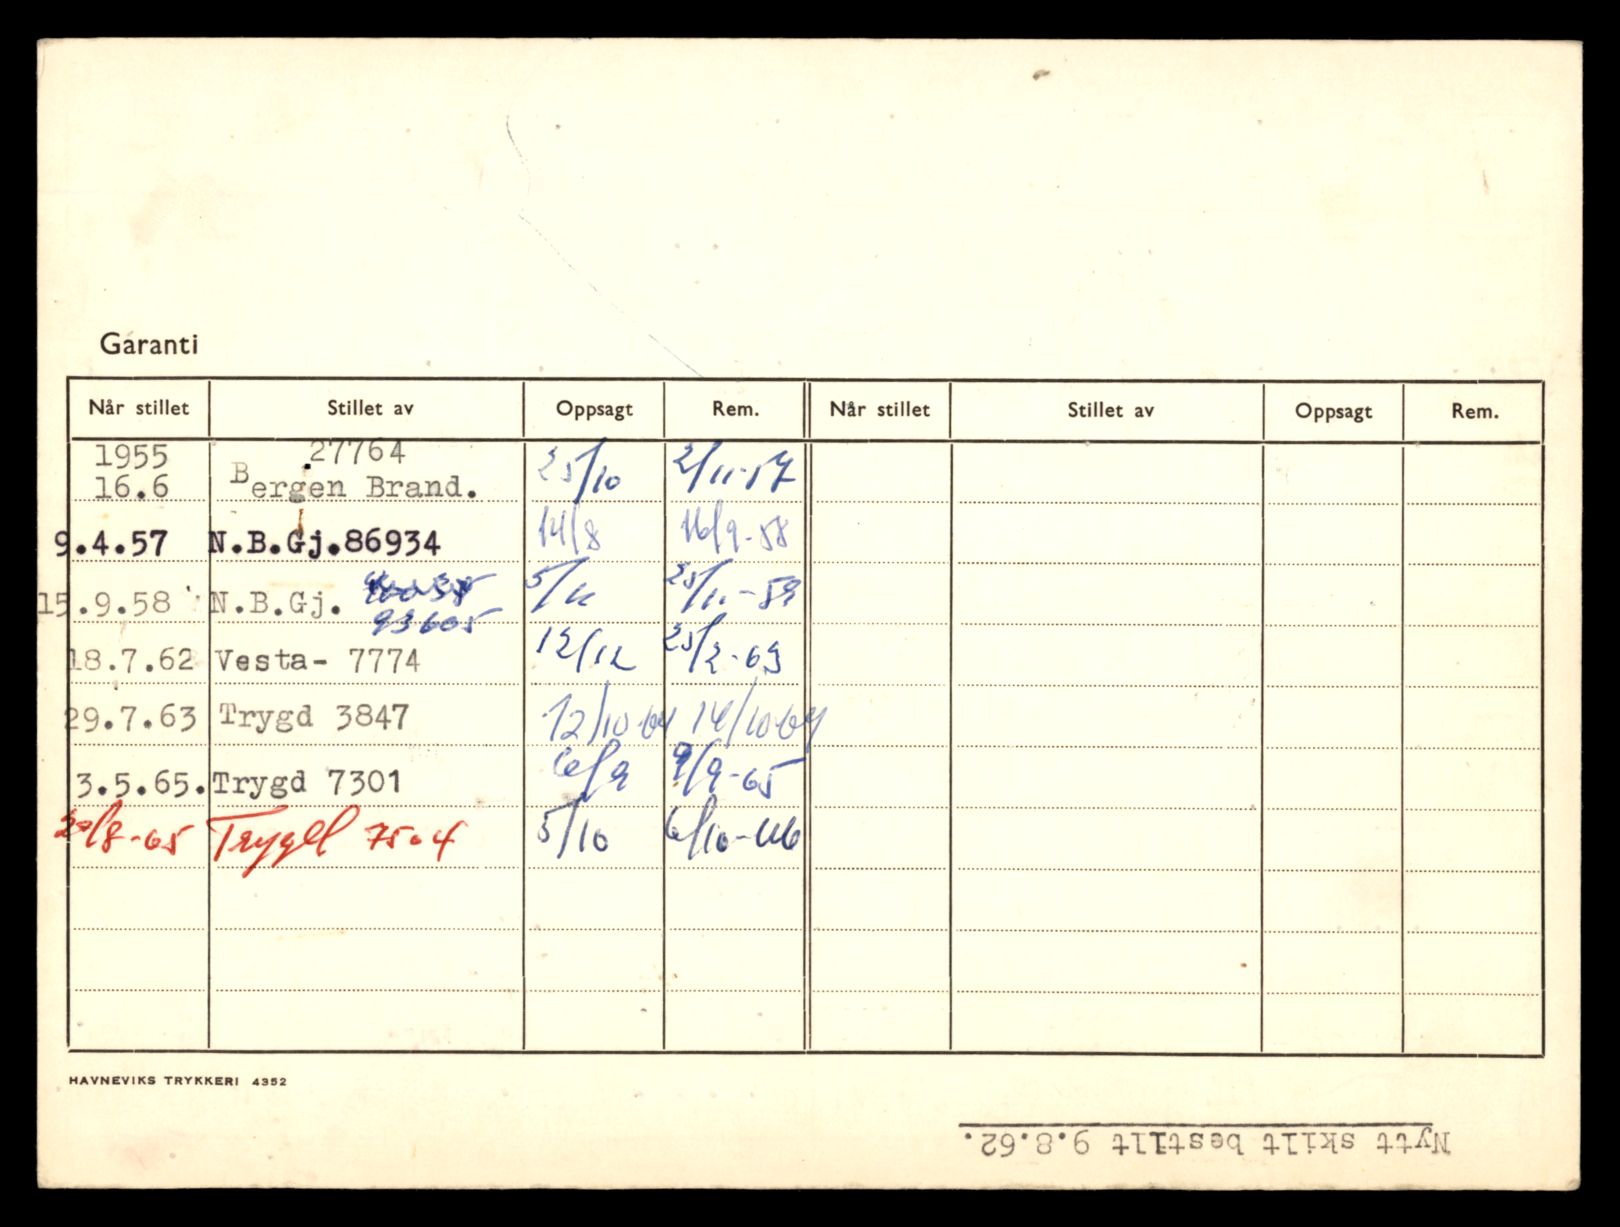 Garanti
Når stillet Stillet av Oppsagt Rem. Når stillet Stillet av Oppsagt Rem.
1955 27764
16.6 Bergen Brand. 25/10 2/11-57
9.4.57 N.B.Gj.86934 14/8 16/9-58
15.9.58 N.B.Gj. 5/11 25/11-59
93605
18.7.62 Vesta- 7774 12/12 25/2-63
29.7.63 Trygd 3847 12/10-64 14/10-64
3.5.65. Trygd 7301 6/9 9/9-65
30/8-65 Trygd 7504 5/10 6/10-66
HAVNEVIKS TRYKKERI 4352
Nytt skilt bestilt 9.8.62.